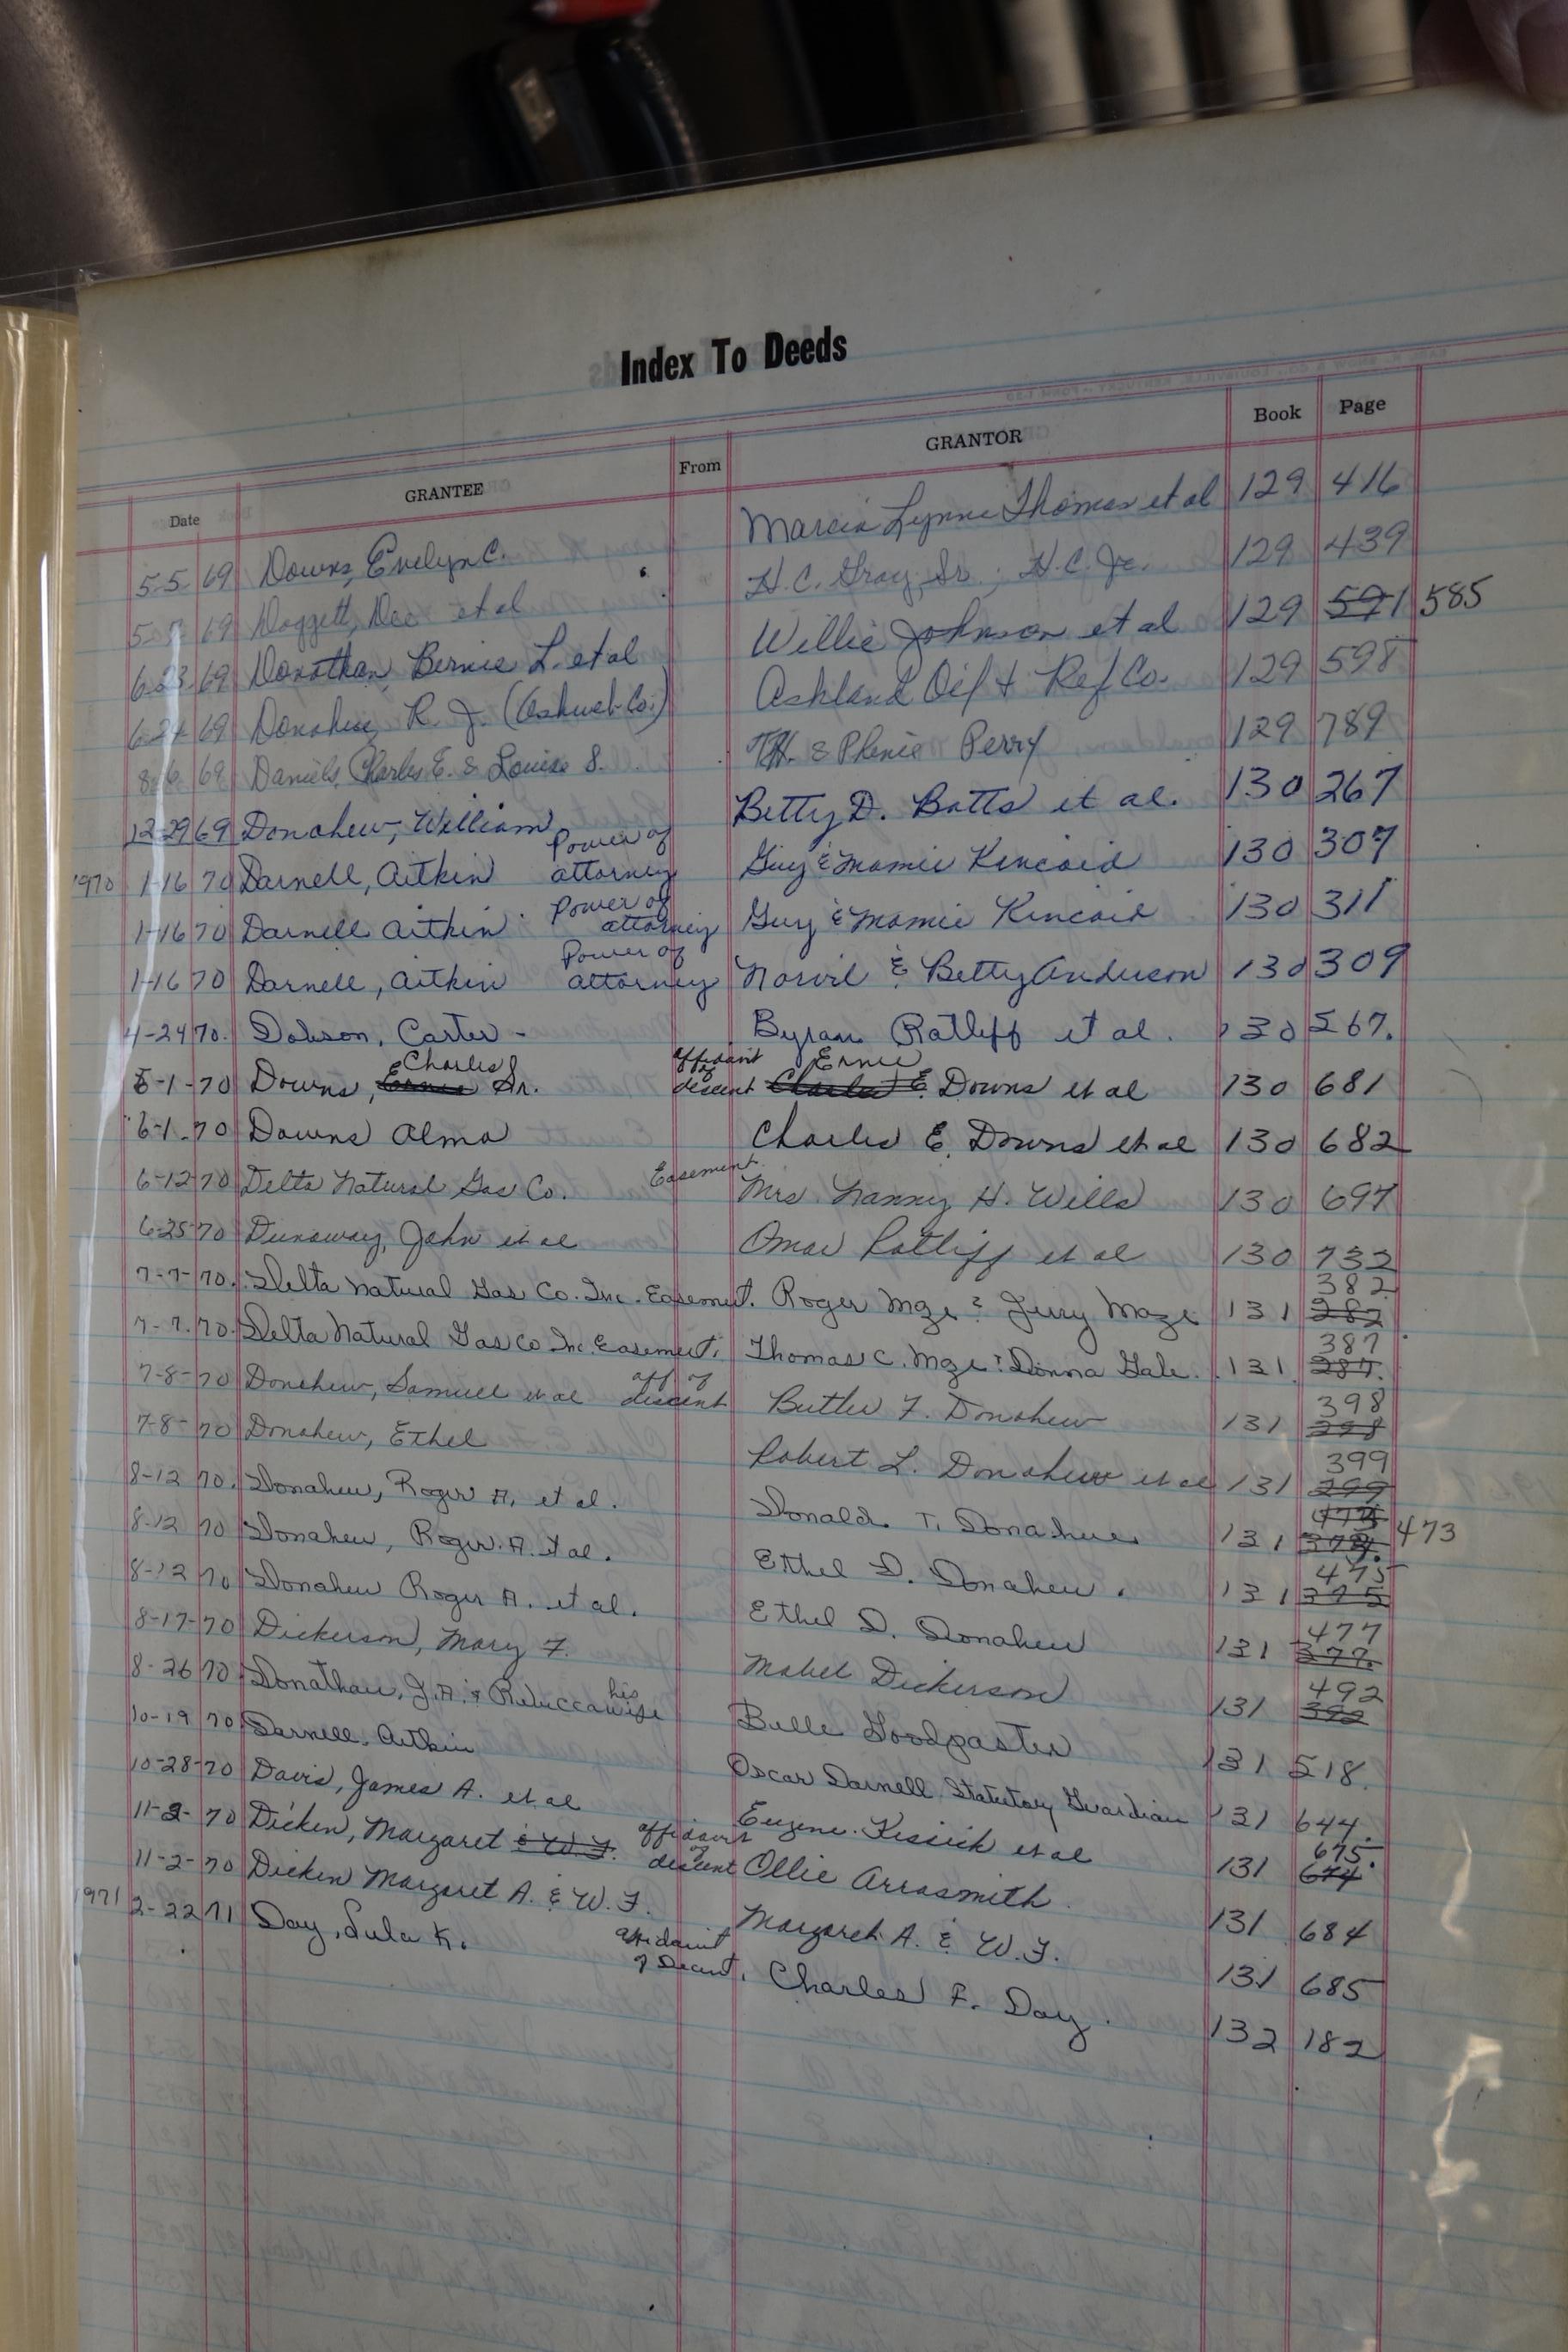 Index To Deeds
Date GRANTEE From GRANTOR Book Page
5-5 69 Downs, Evelyn C. Marcia Lynne Thomas et al 129 416
69 Doggett, Dee et al H.C. Gray, Sr. ; H.C. Jr. 129 439
6-23 69 Donathan, Bernie L. et al Willie Johnson et al 129 591 585
6-24 69 Donahue, R. J. (Ashweb Co.) Ashland Oil & Ref Co. 129 598
8-6 69 Daniels, Charles E. & Louise S. T.H. & Phenie Perry 129 789
12-29 69 Donahew, William Betty D. Botts et al. 130 267
1970 1-16 70 Darnell, Aitkin Power of attorney Guy & Mamie Kincaid 130 307
1-16 70 Darnell Aitkin Power of attorney Guy & Mamie Kincaid 130 311
1-16 70 Darnell, Aitkin Power of attorney Norvil & Betty Anderson 130 309
4-24 70. Dobson, Carter - Byram Ratliff et al. 130 567.
6-1-70 Downs, Ernie Charles Sr. affidavit of descent Charles E. Ernie Downs et al 130 681
6-1-70 Downs Alma Charles E. Downs et al 130 682
6-12 70 Delta Natural Gas Co. Easement Mrs. Nanny H. Wills 130 697
6-25 70 Dunaway, John et al Omar Ratliff et al 130 732
7-7-70. Delta Natural Gas Co. Inc. Easement. Roger Mze & Jerry Maze 131 282 382
7-7-70. Delta Natural Gas Co Inc. Easement. Thomas C. Mze & Donna Gale. 131 287. 387
7-8-70 Donehew, Samuel et al aff of descent Butler F. Donahew 131 298 398
7-8-70 Donahew, Ethel Robert L. Donahew et al 131 299 399
8-12 70. Donahew, Roger A. et al. Donald T. Donahue 131 473
8-12 70 Donahew, Roger A. et al. Ethel D. Donahew. 131 375 475
8-12 70 Donahew Roger A. et al. Ethel D. Donahew 131 377. 477
8-17-70 Dickerson, Mary F. Mabel Dickerson 131 392 492
8-26 70 Donathan, J.A. & Rebecca his wife Belle Goodpaster 131 518.
10-19 70 Darnell, Aitkin Oscar Darnell, Statutory Guardian 131 644.
10-28-70 Davis, James A. et al Eugene Kissick et al 131 674 675.
11-2-70 Dicken, Margaret & W.F. affidavit of descent Ollie Arrasmith 131 684
11-2-70 Dicken Margaret A. & W.F. Margaret A. & W.F. 131 685
1971 2-22 71 Day, Lula K. affidavit of Decent, Charles F. Day. 132 182